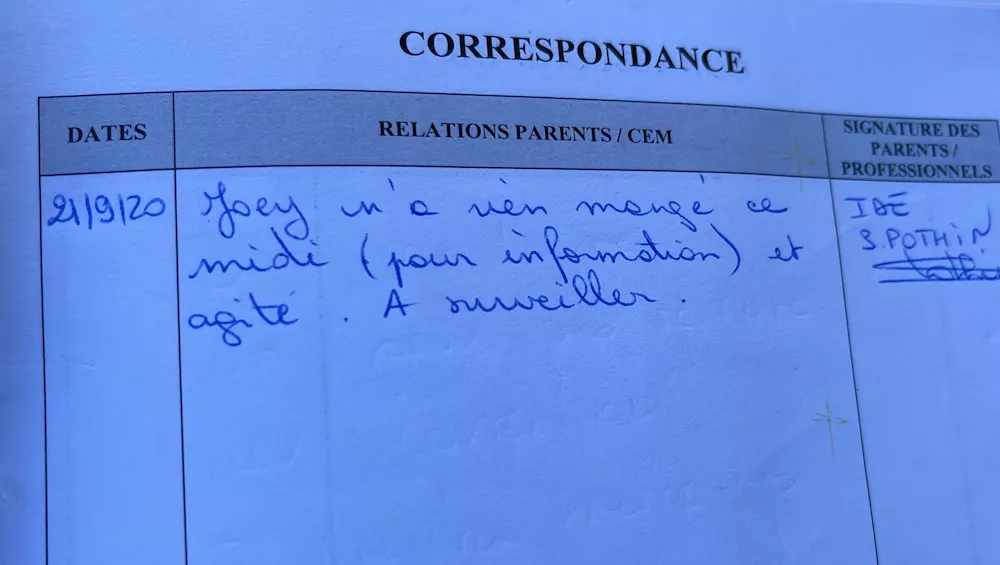 CORRESPONDANCE
DATES
RELATIONS PARENTS / CEM
SIGNATURE DES
PARENTS /
PROFESSIONNELS
21/9/20
Joey n'a rien mangé ce
midi (pour information) et
agité. A surveiller.
IDE
S.POTHIN